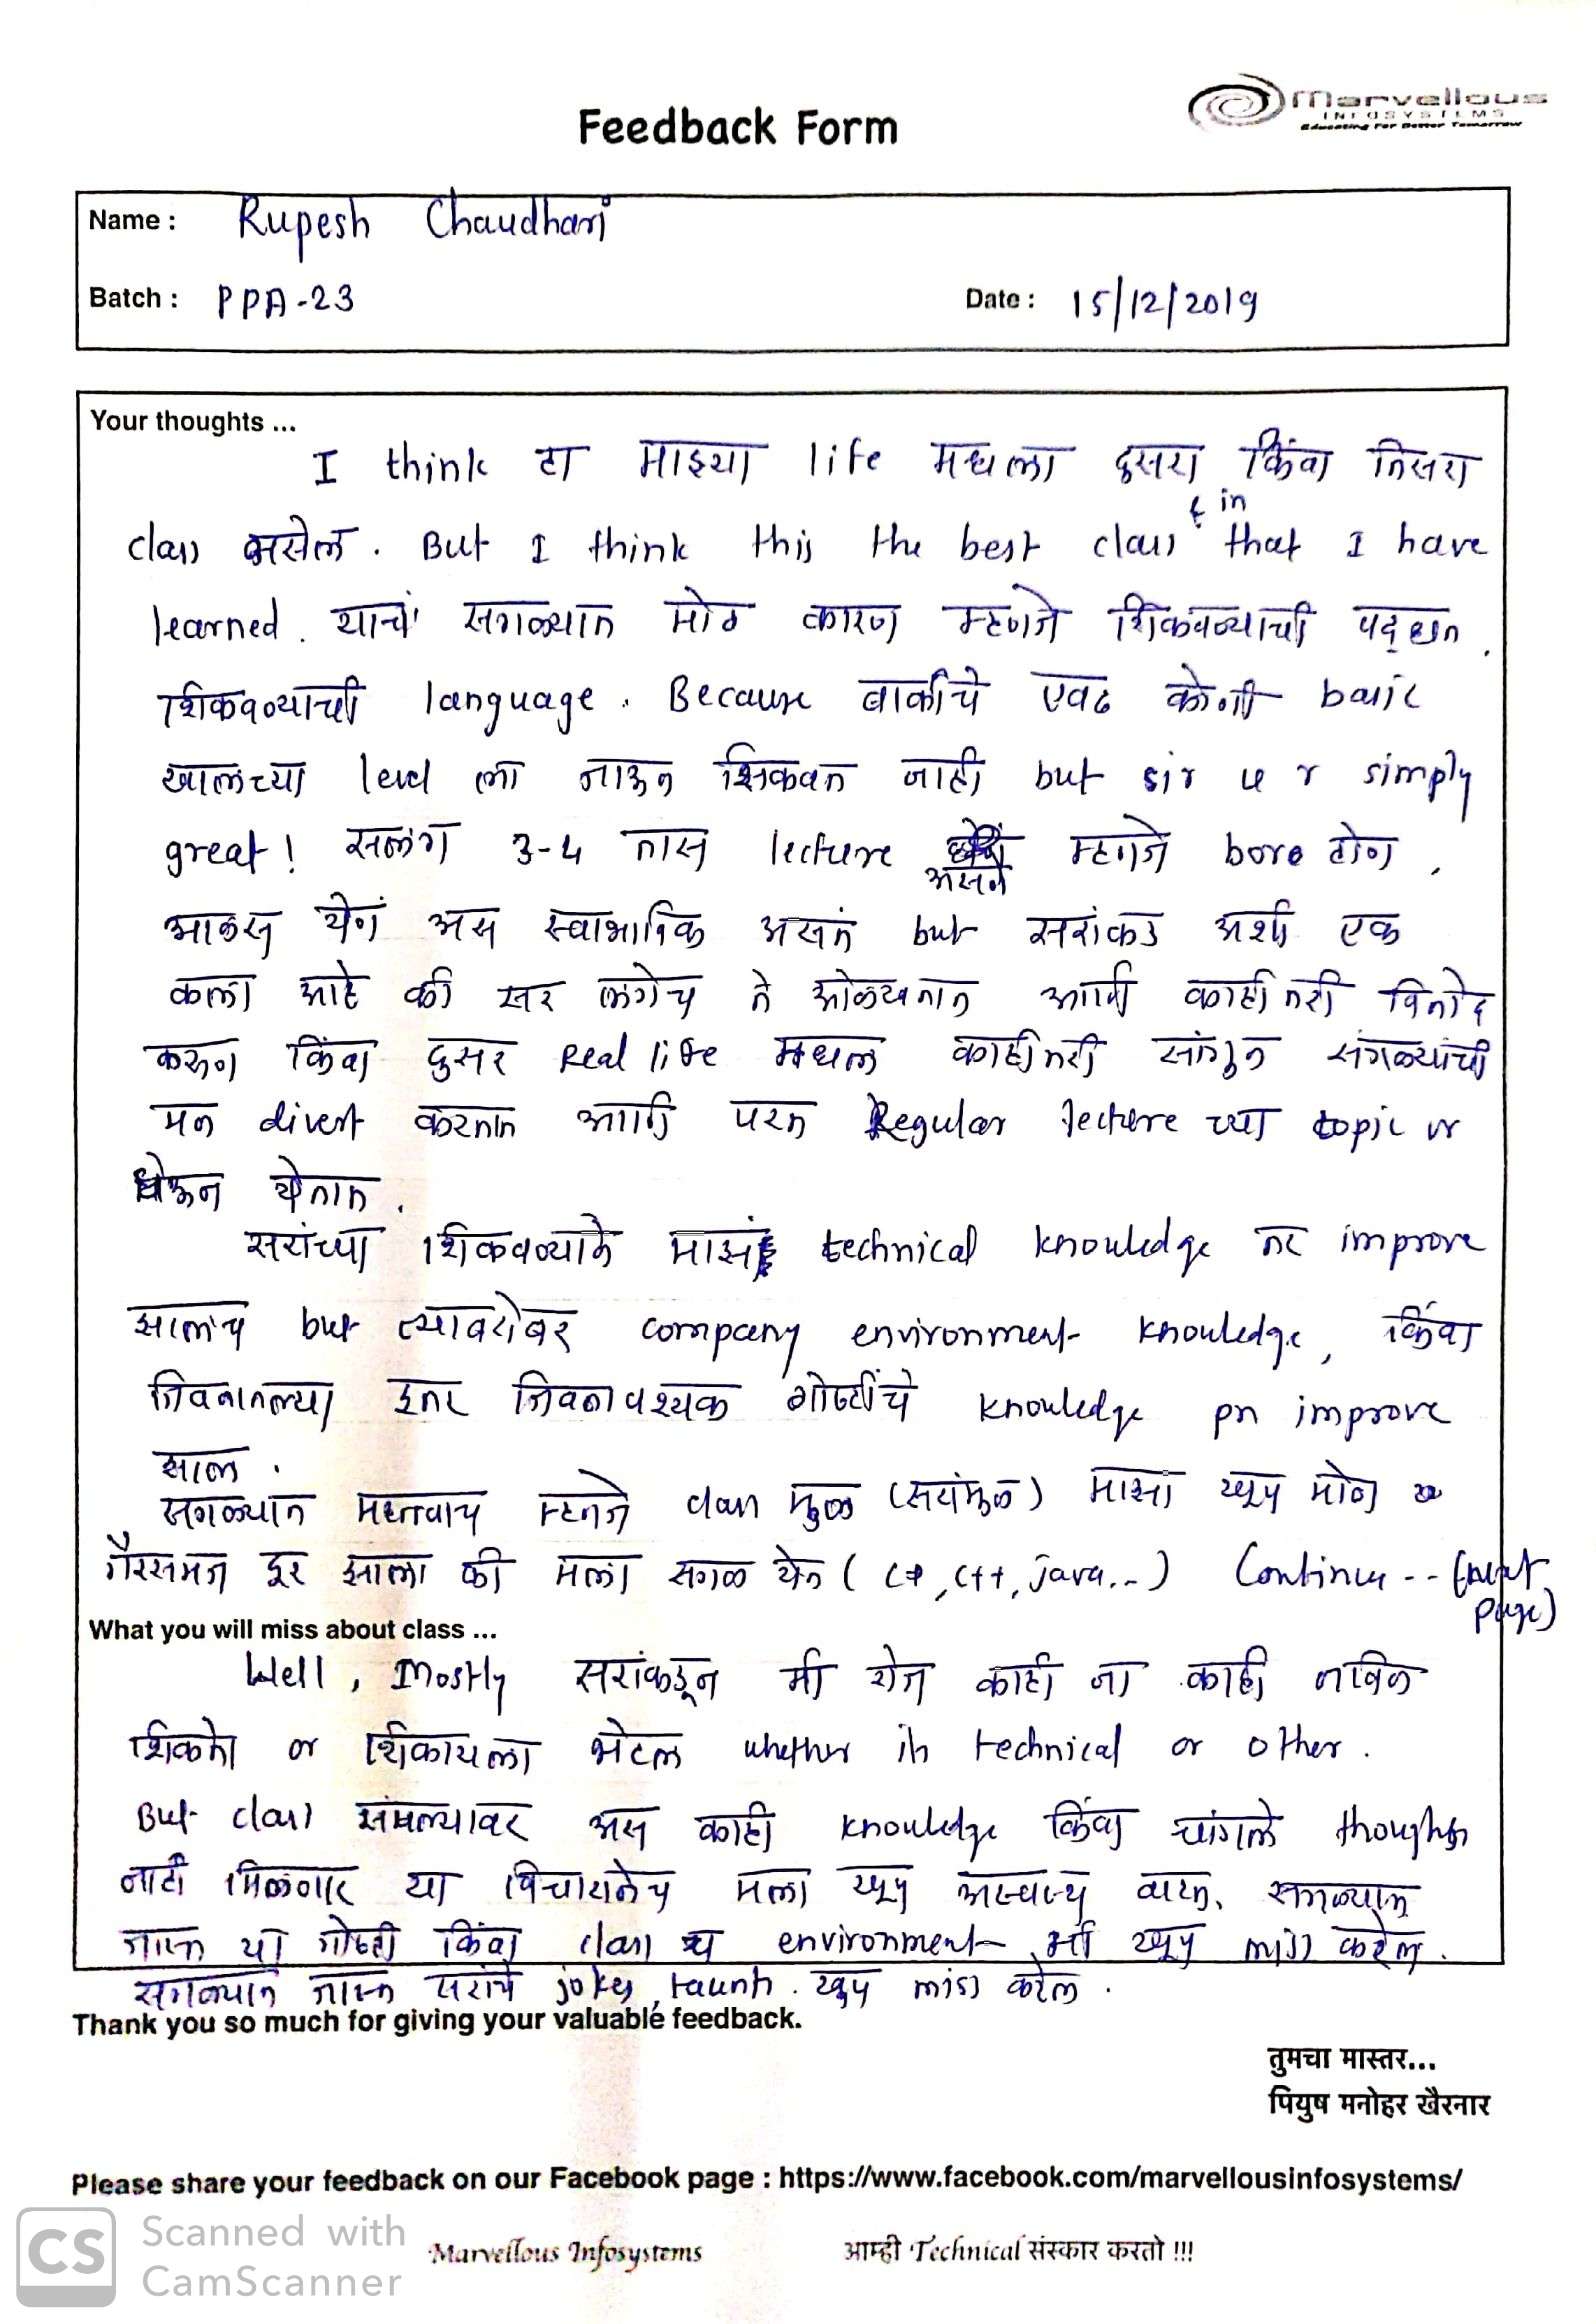 Marvellous
INFOSYSTEMS
Educating For Better Tomorrow
Feedback Form
Name : Rupesh Chaudhari
Batch : PPA-23
Date : 15/12/2019
Your thoughts ...
I think हा माझ्या life मधला दुसरा किंवा तिसरा
class असेल. But I think this the best class in that I have
learned. याचं सगळ्यात मोठ कारण म्हणजे शिकवण्याची पद्धत.
शिकवण्याची language. Because बाकीचे एवढ कोणी basic
खालच्या level ला जाऊन शिकवत नाही but sir u r simply
great! सलग 3-4 तास lecture असले म्हणजे bore होण,
आळस येणं अस स्वाभाविक असतं but सरांकड अशी एक
कला आहे की सर लगेच ते ओळखतात आणि काहीतरी विनोद
करून किंवा दुसर Real life मधल काहीतरी सांगून सगळ्यांची
मन divert करतात आणि परत Regular lecture च्या topic वर
घेऊन येतात.
सरांच्या शिकवण्याने माझं technical knowledge तर improve
झालंच but त्याबरोबर company environment knowledge, किंवा
जिवनातल्या इतर जिवनावश्यक गोष्टींचे knowledge पण improve
झाल.
सगळ्यात महत्वाच म्हणजे class मुळ (सरांमुळ) माझा खूप मोठा
गैरसमज दूर झाला की मला सगळ येत (C, C++, java..) Continue -- (next
page)
What you will miss about class ...
Well, Mostly सरांकडून मी रोज काही ना काही नविन
शिकतो or शिकायला भेटल whether its technical or other.
But class संपल्यावर अस काही knowledge किंवा चांगले thoughts
नाही मिळणार या विचारानेच मला खूप अस्वस्थ वाटत. सगळ्यात
जास्त या गोष्टी किंवा class च environment मी खूप miss करेल.
सगळ्यात जास्त सरांचे jokes, taunts. खूप miss करेल.
Thank you so much for giving your valuable feedback.
तुमचा मास्तर...
पियुष मनोहर खैरनार
Please share your feedback on our Facebook page : https://www.facebook.com/marvellousinfosystems/
Marvellous Infosystems आम्ही Technical संस्कार करतो !!!
CS Scanned with
CamScanner